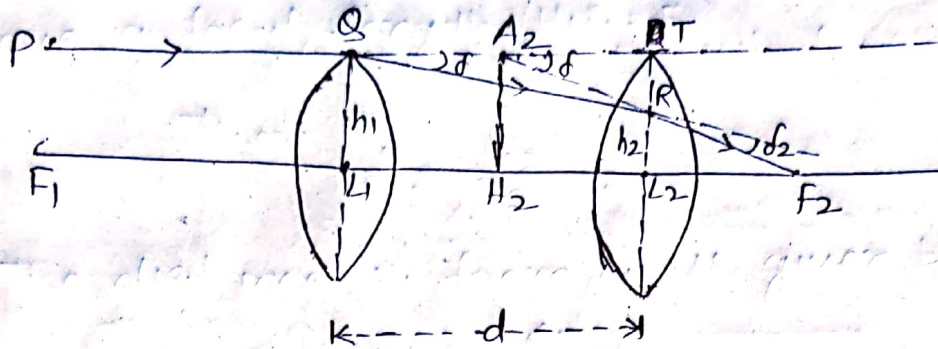 P Q A₂ T
δ δ
h₁ R
h₂ δ₂
F₁ L₁ H₂ L₂ F₂
d